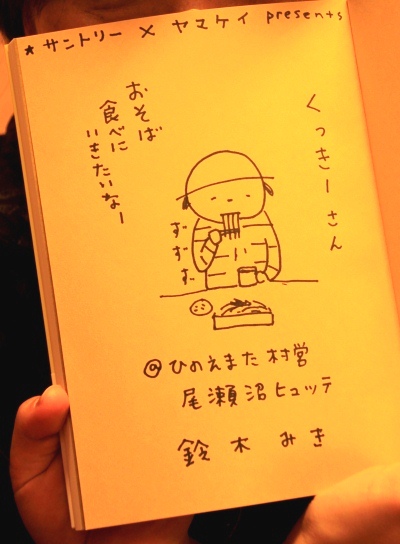 ★ サントリー × ヤマケイ presents
くっきーさん
おそば
食べに
いきたいなー
ずずず
@ひのえまた村営
尾瀬沼ヒュッテ
鈴木みき